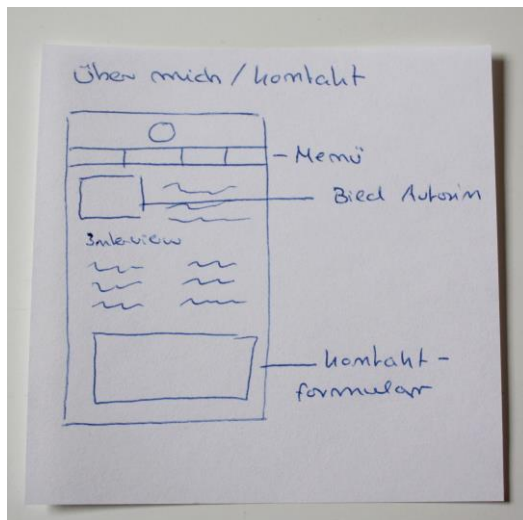 Über mich / Kontakt
Menü
Bild Autorin
Interview
Kontakt-
formular